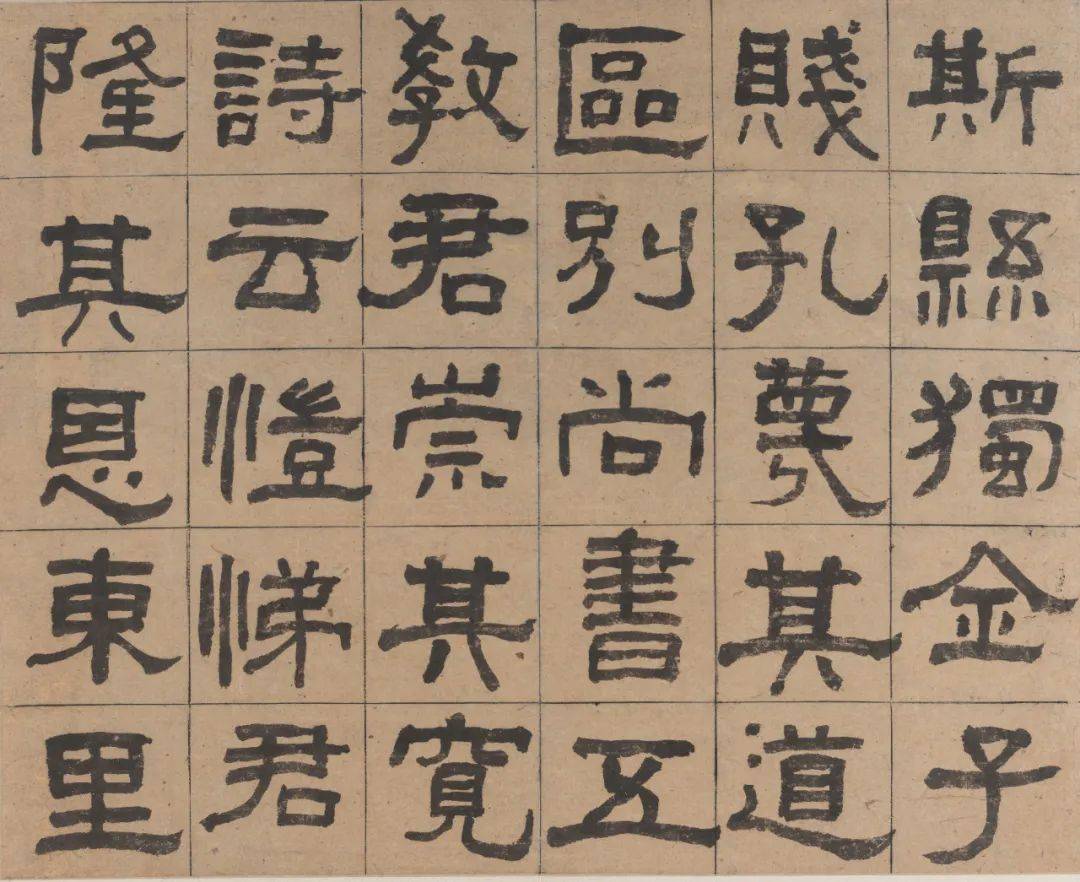 斯縣獨金子
賤孔蔑其道
區別尚書五
教君崇其寬
詩云愷悌君
隆其恩東里